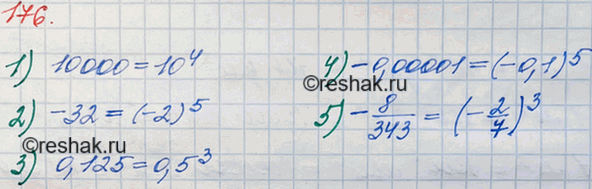 176.
1) 10000 = 10⁴
2) -32 = (-2)⁵
3) 0,125 = 0,5³
4) -0,00001 = (-0,1)⁵
5) -8/343 = (-2/7)³
©reshak.ru
©reshak.ru
©reshak.ru